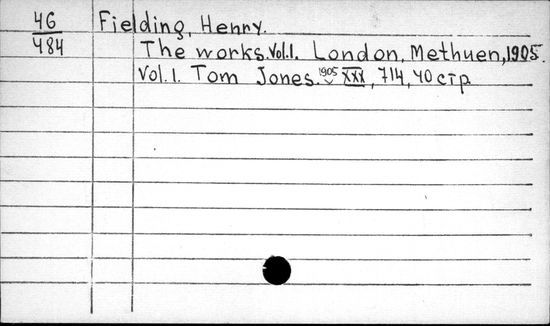 46 Fielding, Henry.
484 The works. Vol.1. London, Methuen, 1905.
Vol. 1. Tom Jones. 1905 XXX, 714, 40 стр